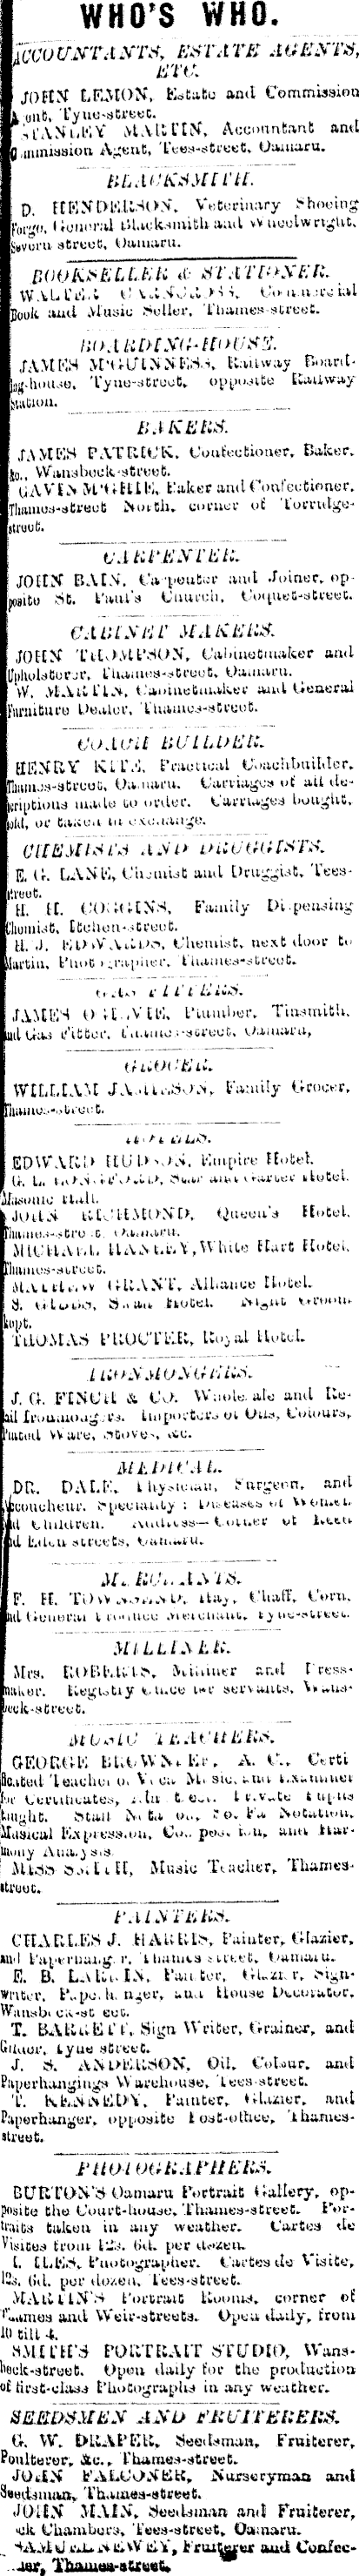 WHO'S WHO.
ACCOUNTANTS, ESTATE AGENTS,
ETC.
JOHN LEMON, Estate and Commission
Agent, Tyne-street.
STANLEY MARTIN, Accountant and
Commission Agent, Tees-street, Oamaru.
BLACKSMITH.
D. HENDERSON, Veterinary Shoeing
Forge, General Blacksmith and Wheelwright,
Severn street, Oamaru.
BOOKSELLER & STATIONER.
WALTER Commercial
Book and Music Seller, Thames-street.
BOARDING-HOUSE.
JAMES M'GUINNESS, Railway Board-
ing-house, Tyne-street, opposite Railway
Station.
BAKERS.
JAMES PATRICK, Confectioner, Baker,
&c., Wansbeck-street.
GAVIN M'GHIE, Baker and Confectioner,
Thames-street North, corner of Torridge-
street.
CARPENTER.
JOHN BAIN, Carpenter and Joiner, op-
posite St. Paul's Church, Coquet-street.
CABINET MAKERS.
JOHN THOMPSON, Cabinetmaker and
Upholsterer, Thames-street, Oamaru.
W. MARTIN, Cabinetmaker and General
Furniture Dealer, Thames-street.
COACH BUILDER.
HENRY KITE, Practical Coachbuilder,
Thames-street, Oamaru. Carriages of all de-
scriptions made to order. Carriages bought,
sold, or taken in exchange.
CHEMISTS AND DRUGGISTS.
E. G. LANE, Chemist and Druggist, Tees-
street.
H. H. COGGINS, Family Dispensing
Chemist, Itchen-street.
H. J. EDWARDS, Chemist, next door to
Martin, Photographer, Thames-street.
GAS FITTERS.
JAMES OGILVIE, Plumber, Tinsmith,
and Gas Fitter, Thames-street, Oamaru,
GROCER.
WILLIAM JAMIESON, Family Grocer,
Thames-street.
HOTELS.
EDWARD HUDSON, Empire Hotel.
G. L. Star and Garter Hotel,
Masonic Hall.
JOHN RICHMOND, Queen's Hotel,
Thames-street, Oamaru.
MICHAEL HANLEY, White Hart Hotel,
Thames-street.
MATTHEW GRANT, Alliance Hotel.
S. GIBBS, Swan Hotel. Night Groom
kept.
THOMAS PROCTER, Royal Hotel.
IRONMONGERS.
J. G. FINCH & CO. Wholesale and Re-
tail Ironmongers. Importers of Oils, Colours,
Plated Ware, Stoves, &c.
MEDICAL.
DR. DALE, Physician, Surgeon, and
Accoucheur. Speciality: Diseases of Women
and Children. Address—Corner of
and Eden streets, Oamaru.
MERCHANTS.
F. H. TOWNSEND, Hay, Chaff, Corn,
and General Produce Merchant, Tyne-street.
MILLINER.
Mrs. ROBERTS, Milliner and Dress-
maker. Registry Office for servants, Wans-
beck-street.
MUSIC TEACHERS.
GEORGE A. C., Certi
ficated Teacher of Vocal Music, and Examiner
for Certificates, Private Pupils
taught. Staff Notation, So. Fa Notation,
Musical Expression, Composition, and Har-
mony Analysis.
MISS SMITH, Music Teacher, Thames-
street.
PAINTERS.
CHARLES J. HARRIS, Painter, Glazier,
and Paperhanger, Thames street, Oamaru.
E. B. LARKIN, Painter, Glazier, Sign-
writer, Paperhanger, and House Decorator,
Wansbeck-street.
T. BARRETT, Sign Writer, Grainer, and
Gilder, Tyne street.
J. S. ANDERSON, Oil, Colour, and
Paperhangings Warehouse, Tees-street.
T. KENNEDY, Painter, Glazier, and
Paperhanger, opposite Post-office, Thames-
street.
PHOTOGRAPHERS.
BURTON'S Oamaru Portrait Gallery, op-
posite the Court-house, Thames-street. Por-
traits taken in any weather. Cartes de
Visites from 12s. 6d. per dozen.
I. ILES, Photographer. Cartes de Visite,
12s. 6d. per dozen, Tees-street.
MARTIN'S Portrait Rooms, corner of
Thames and Weir-streets. Open daily, from
10 till 4.
SMITH'S PORTRAIT STUDIO, Wans-
beck-street. Open daily for the production
of first-class Photographs in any weather.
SEEDSMEN AND FRUITERERS.
G. W. DRAPER, Seedsman, Fruiterer,
Poulterer, &c., Thames-street.
JOHN FALCONER, Nurseryman and
Seedsman, Thames-street.
JOHN MAIN, Seedsman and Fruiterer,
Chambers, Tees-street, Oamaru.
SAMUEL NEWEY, Fruiterer and Confec-
tioner, Thames-street.